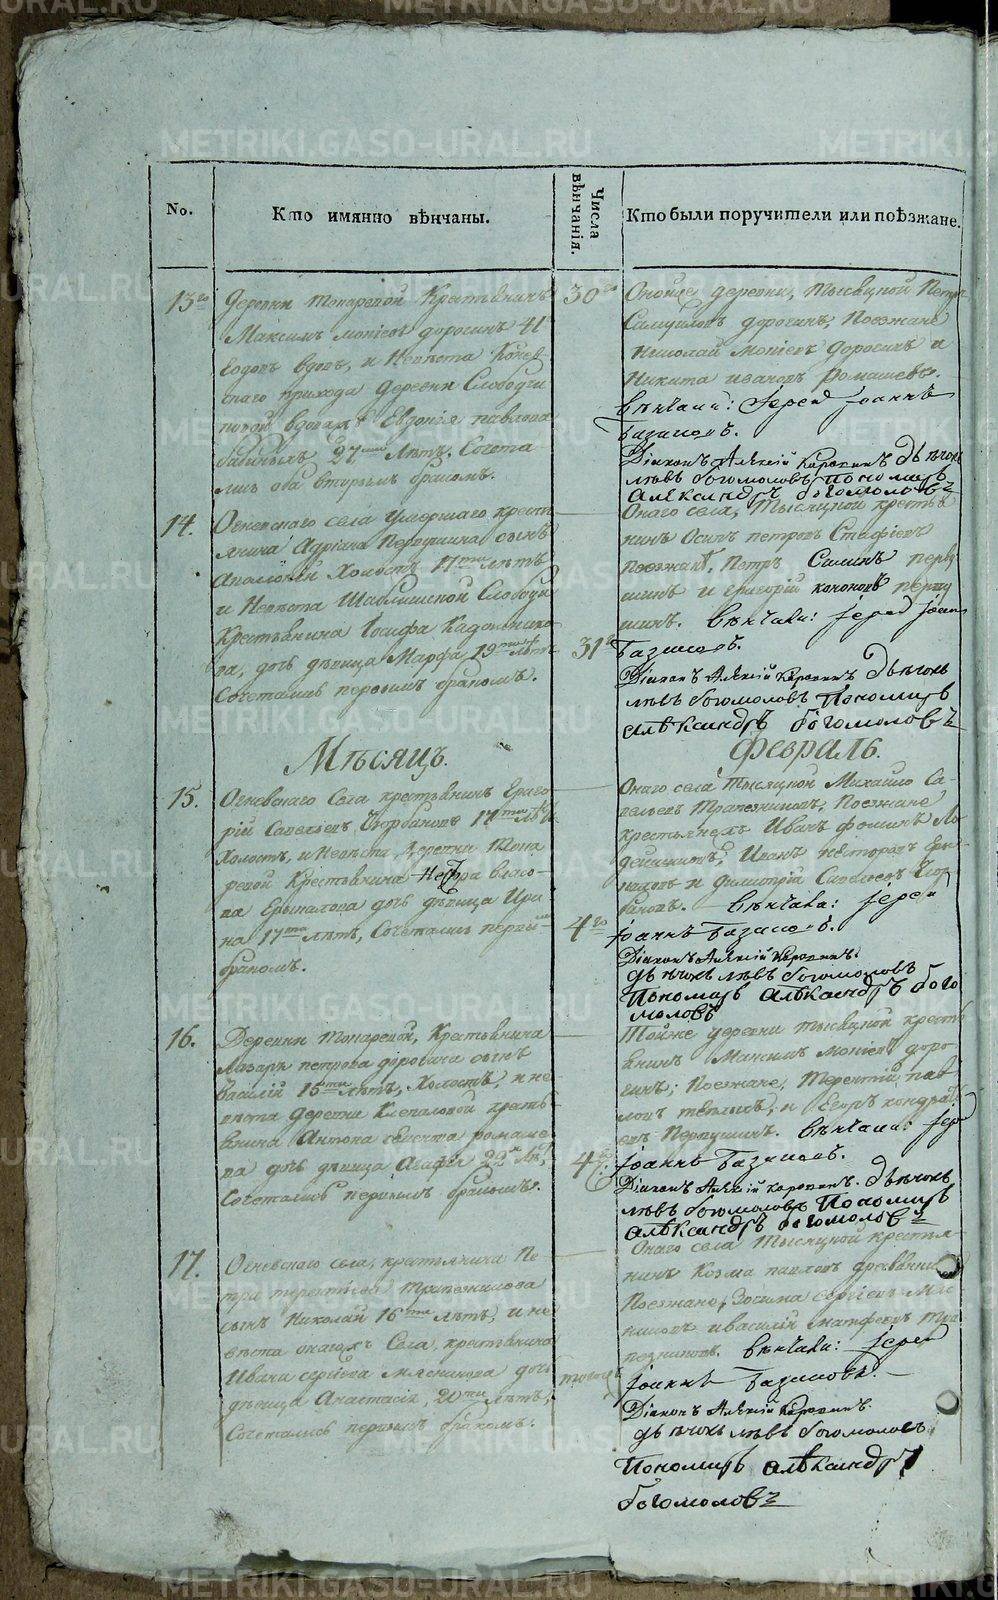 No.
Кто имянно вѣнчаны.
Числа вѣнчанія.
Кто были поручители или поѣзжане.
13го
Деревни Токаревой Крестьянинъ
Максимъ Дорогинъ 41
годовъ вдовъ, и Невѣста
прихода деревни
вдова Евдокія Павлова
27ми Лѣтъ. Сочета
лись оба вторымъ бракомъ.
30го
Оной же деревни, Тысяцкой Петръ
Самуиловъ Дорогинъ, Поезжане
Николай Дорогинъ и
Никита Ивановъ Ромашевъ.
Вѣнчали: Іерей Іоаннъ
Базиловъ.
Діаконъ Алѣксій Коровинъ Дьячокъ
Лѣвъ Богомоловъ Пономарь
Алѣксандръ Богомоловъ
14.
Огневскаго села умершаго кресть
янина Адріана Первушина сынъ
Аполоній Холостъ 17ти лѣтъ
и Невѣста Слободы
Крестьянина Іосифа
ва, дочь дѣвица Марфа 19ти лѣтъ
Сочетались первымъ бракомъ.
31го
Онаго села, Тысяцкой крестья
нинъ Осипъ Петровъ
Поезжане, Петръ Силинъ Перву
шинъ и Григорій Кононовъ Перву
шинъ. Вѣнчали: Іерей Іоаннъ
Базиловъ.
Діаконъ Алѣксій Коровинъ Дьячокъ
Лѣвъ Богомоловъ Пономарь
Алѣксандръ Богомоловъ
Мѣсяцъ.
Февраль.
15.
Огневскаго Села крестьянинъ Григо
рій Савельевъ Чюрбановъ 17ти лѣтъ
Холостъ, и Невѣста, деревни Тока
ревой Крестьянина Власо
ва Ерыкалова дочь дѣвица Ири
на 17ти лѣтъ, Сочетались первымъ
бракомъ.
4го
Онаго села Тысяцкой Михайло Са
вельевъ Трапезниковъ, Поезжане
крестьяне Иванъ Фоминъ
Иванъ
и Димитрій Савельевъ Чюр
бановъ. Вѣнчали: Іерей
Іоаннъ Базиловъ.
Діаконъ Алѣксій Коровинъ.
Дьячокъ Лѣвъ Богомоловъ
Пономарь Алѣксандръ Бого
моловъ
16.
Деревни Токаревой, Крестьянина
Лазаря Петрова Дорогина сынъ
Василій 15ти лѣтъ, Холостъ, и не
вѣста деревни кресть
янина Антона Ромаше
ва дочь дѣвица Агафія 22 лѣтъ,
Сочетались первымъ бракомъ.
4го
Той же деревни тысяцкой кресть
янинъ Максимъ Доро
гинъ; Поезжане, Терентій Пав
ловъ и Егоръ Кондрать
евъ Первушинъ. Вѣнчали: Іерей
Іоаннъ Базиловъ.
Діаконъ Алѣксій Коровинъ. Дьячокъ
Лѣвъ Богомоловъ Пономарь
Алѣксандръ Богомоловъ
17.
Огневскаго села, крестьянина Пе
тра Терентьева Трапезникова
сынъ Николай 16ти лѣтъ, и не
вѣста онаго жъ Села, крестьянина
Ивана Сергіева Мясникова дочь
дѣвица Анастасія, 20ти лѣтъ,
Сочетались первымъ бракомъ.
Онаго села Тысяцкой крестья
нинъ Козма Павловъ
Поезжане, Зосима Сергіевъ Мяс
никовъ и Василій Матфеевъ Тра
пезниковъ. Вѣнчали: Іерей
Іоаннъ Базиловъ.
Діаконъ Алѣксій Коровинъ.
Дьячокъ Лѣвъ Богомоловъ
Пономарь Алѣксандръ
Богомоловъ
METRIKI.GASO-URAL.RU